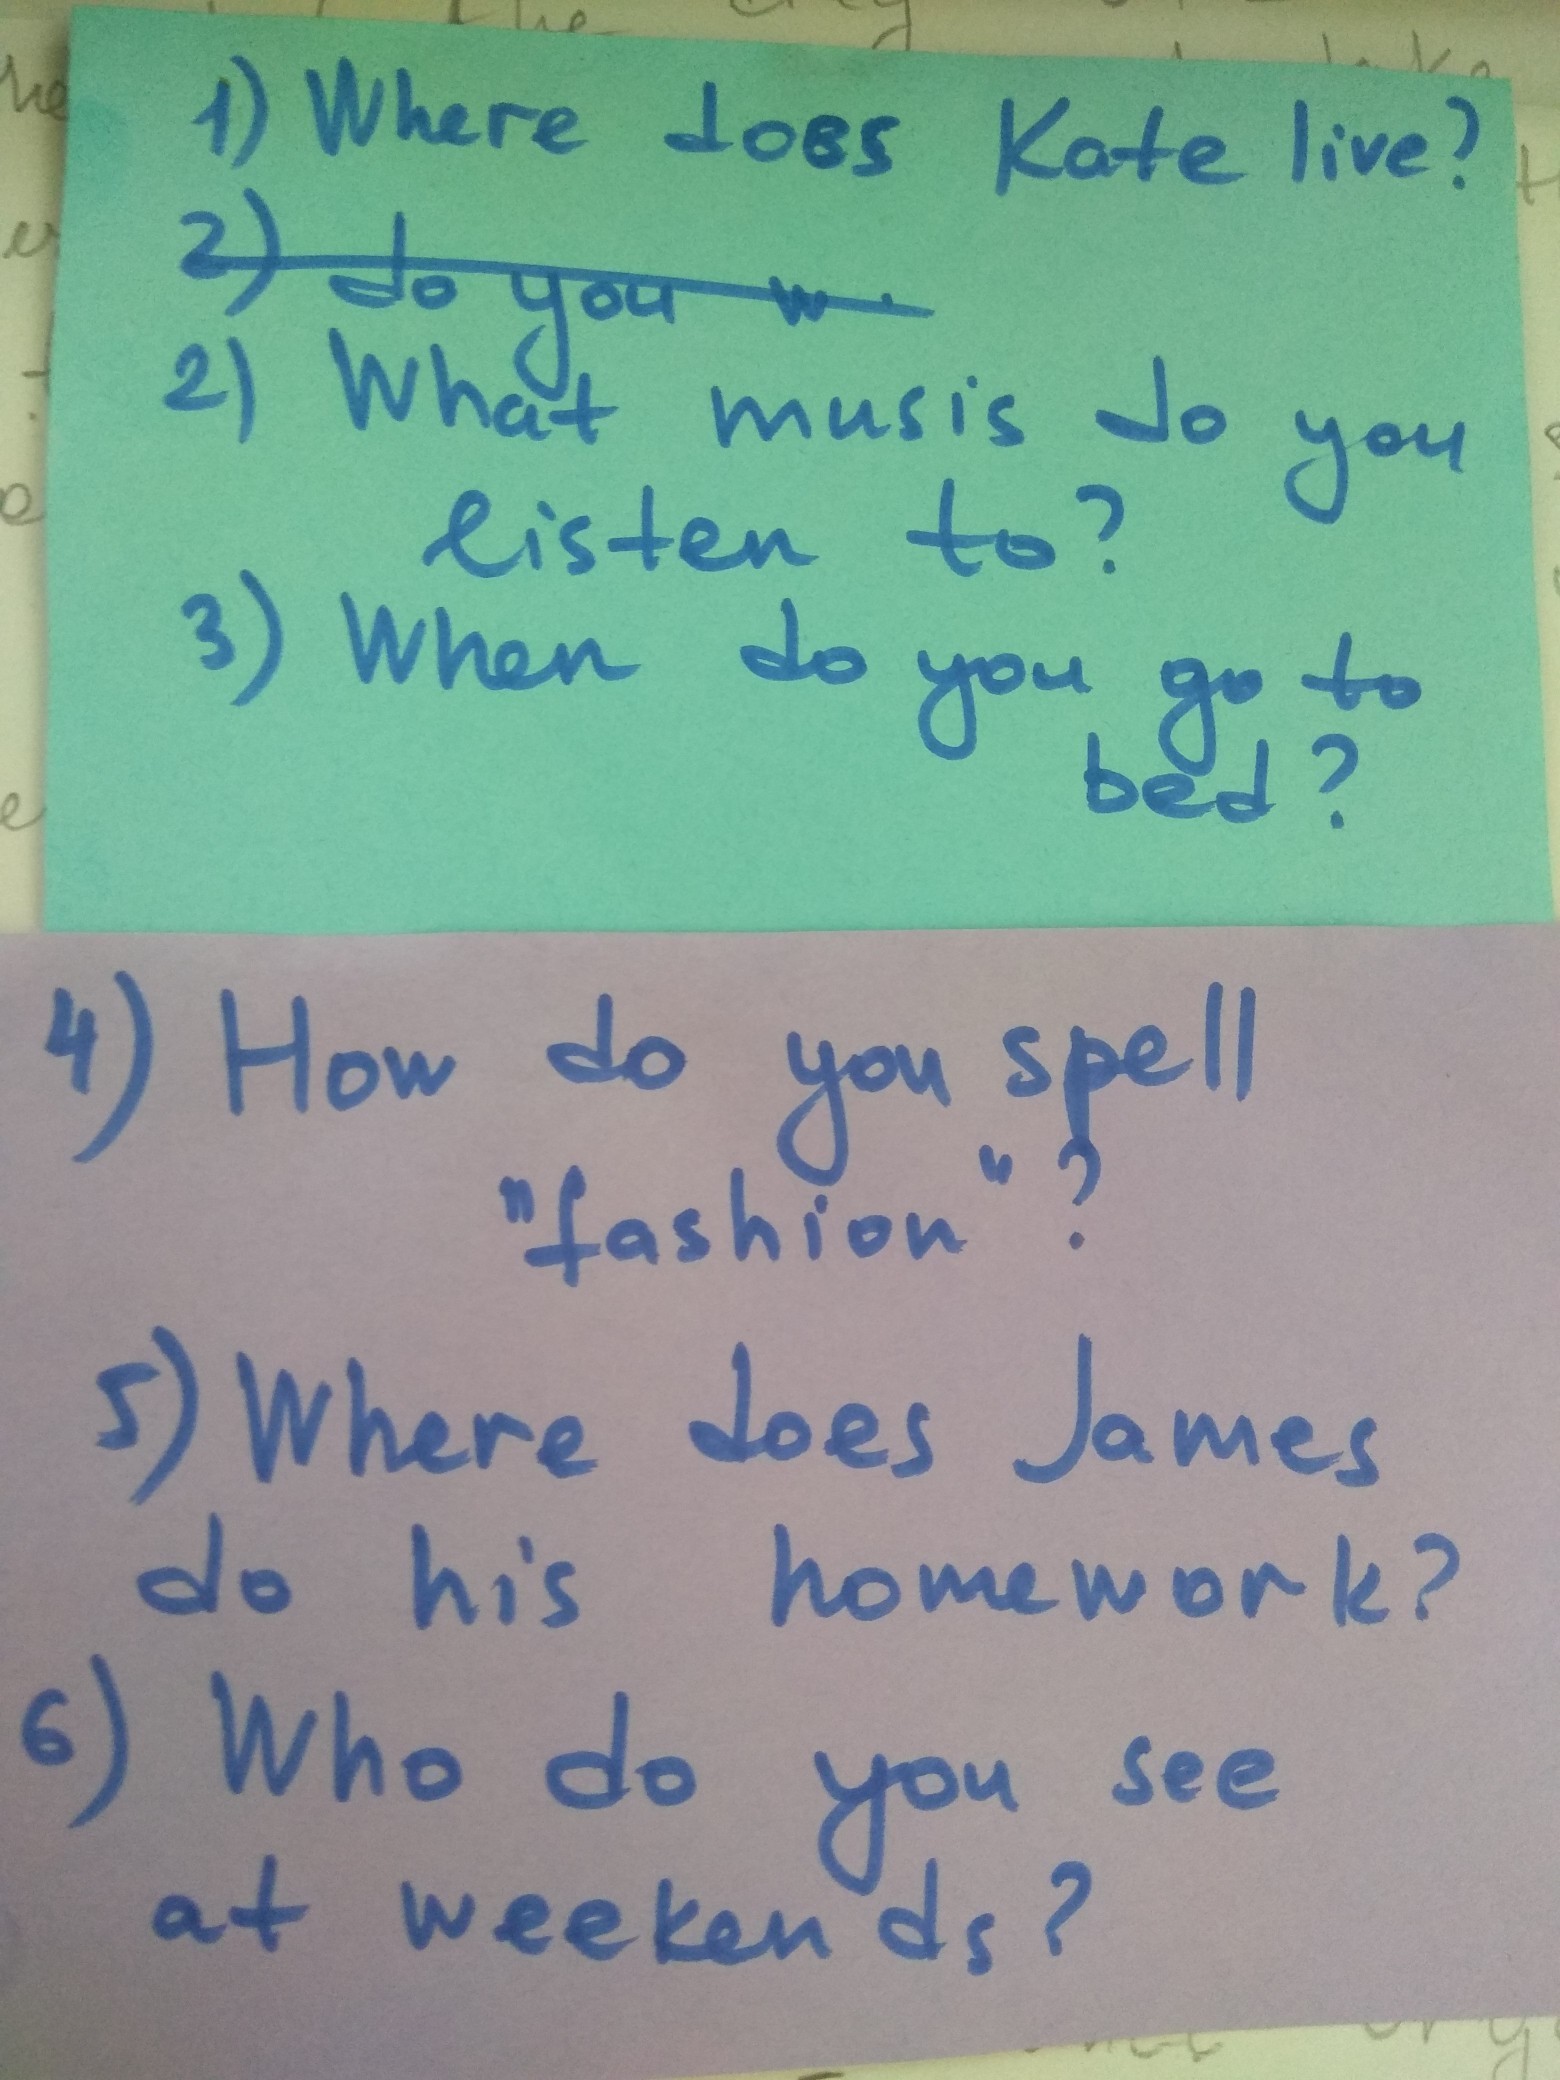 1) Where does Kate live?
2) do you w
2) What musis do you
listen to?
3) When do you go to
bed?
4) How do you spell
"fashion"?
5) Where does James
do his homework?
6) Who do you see
at weekends?